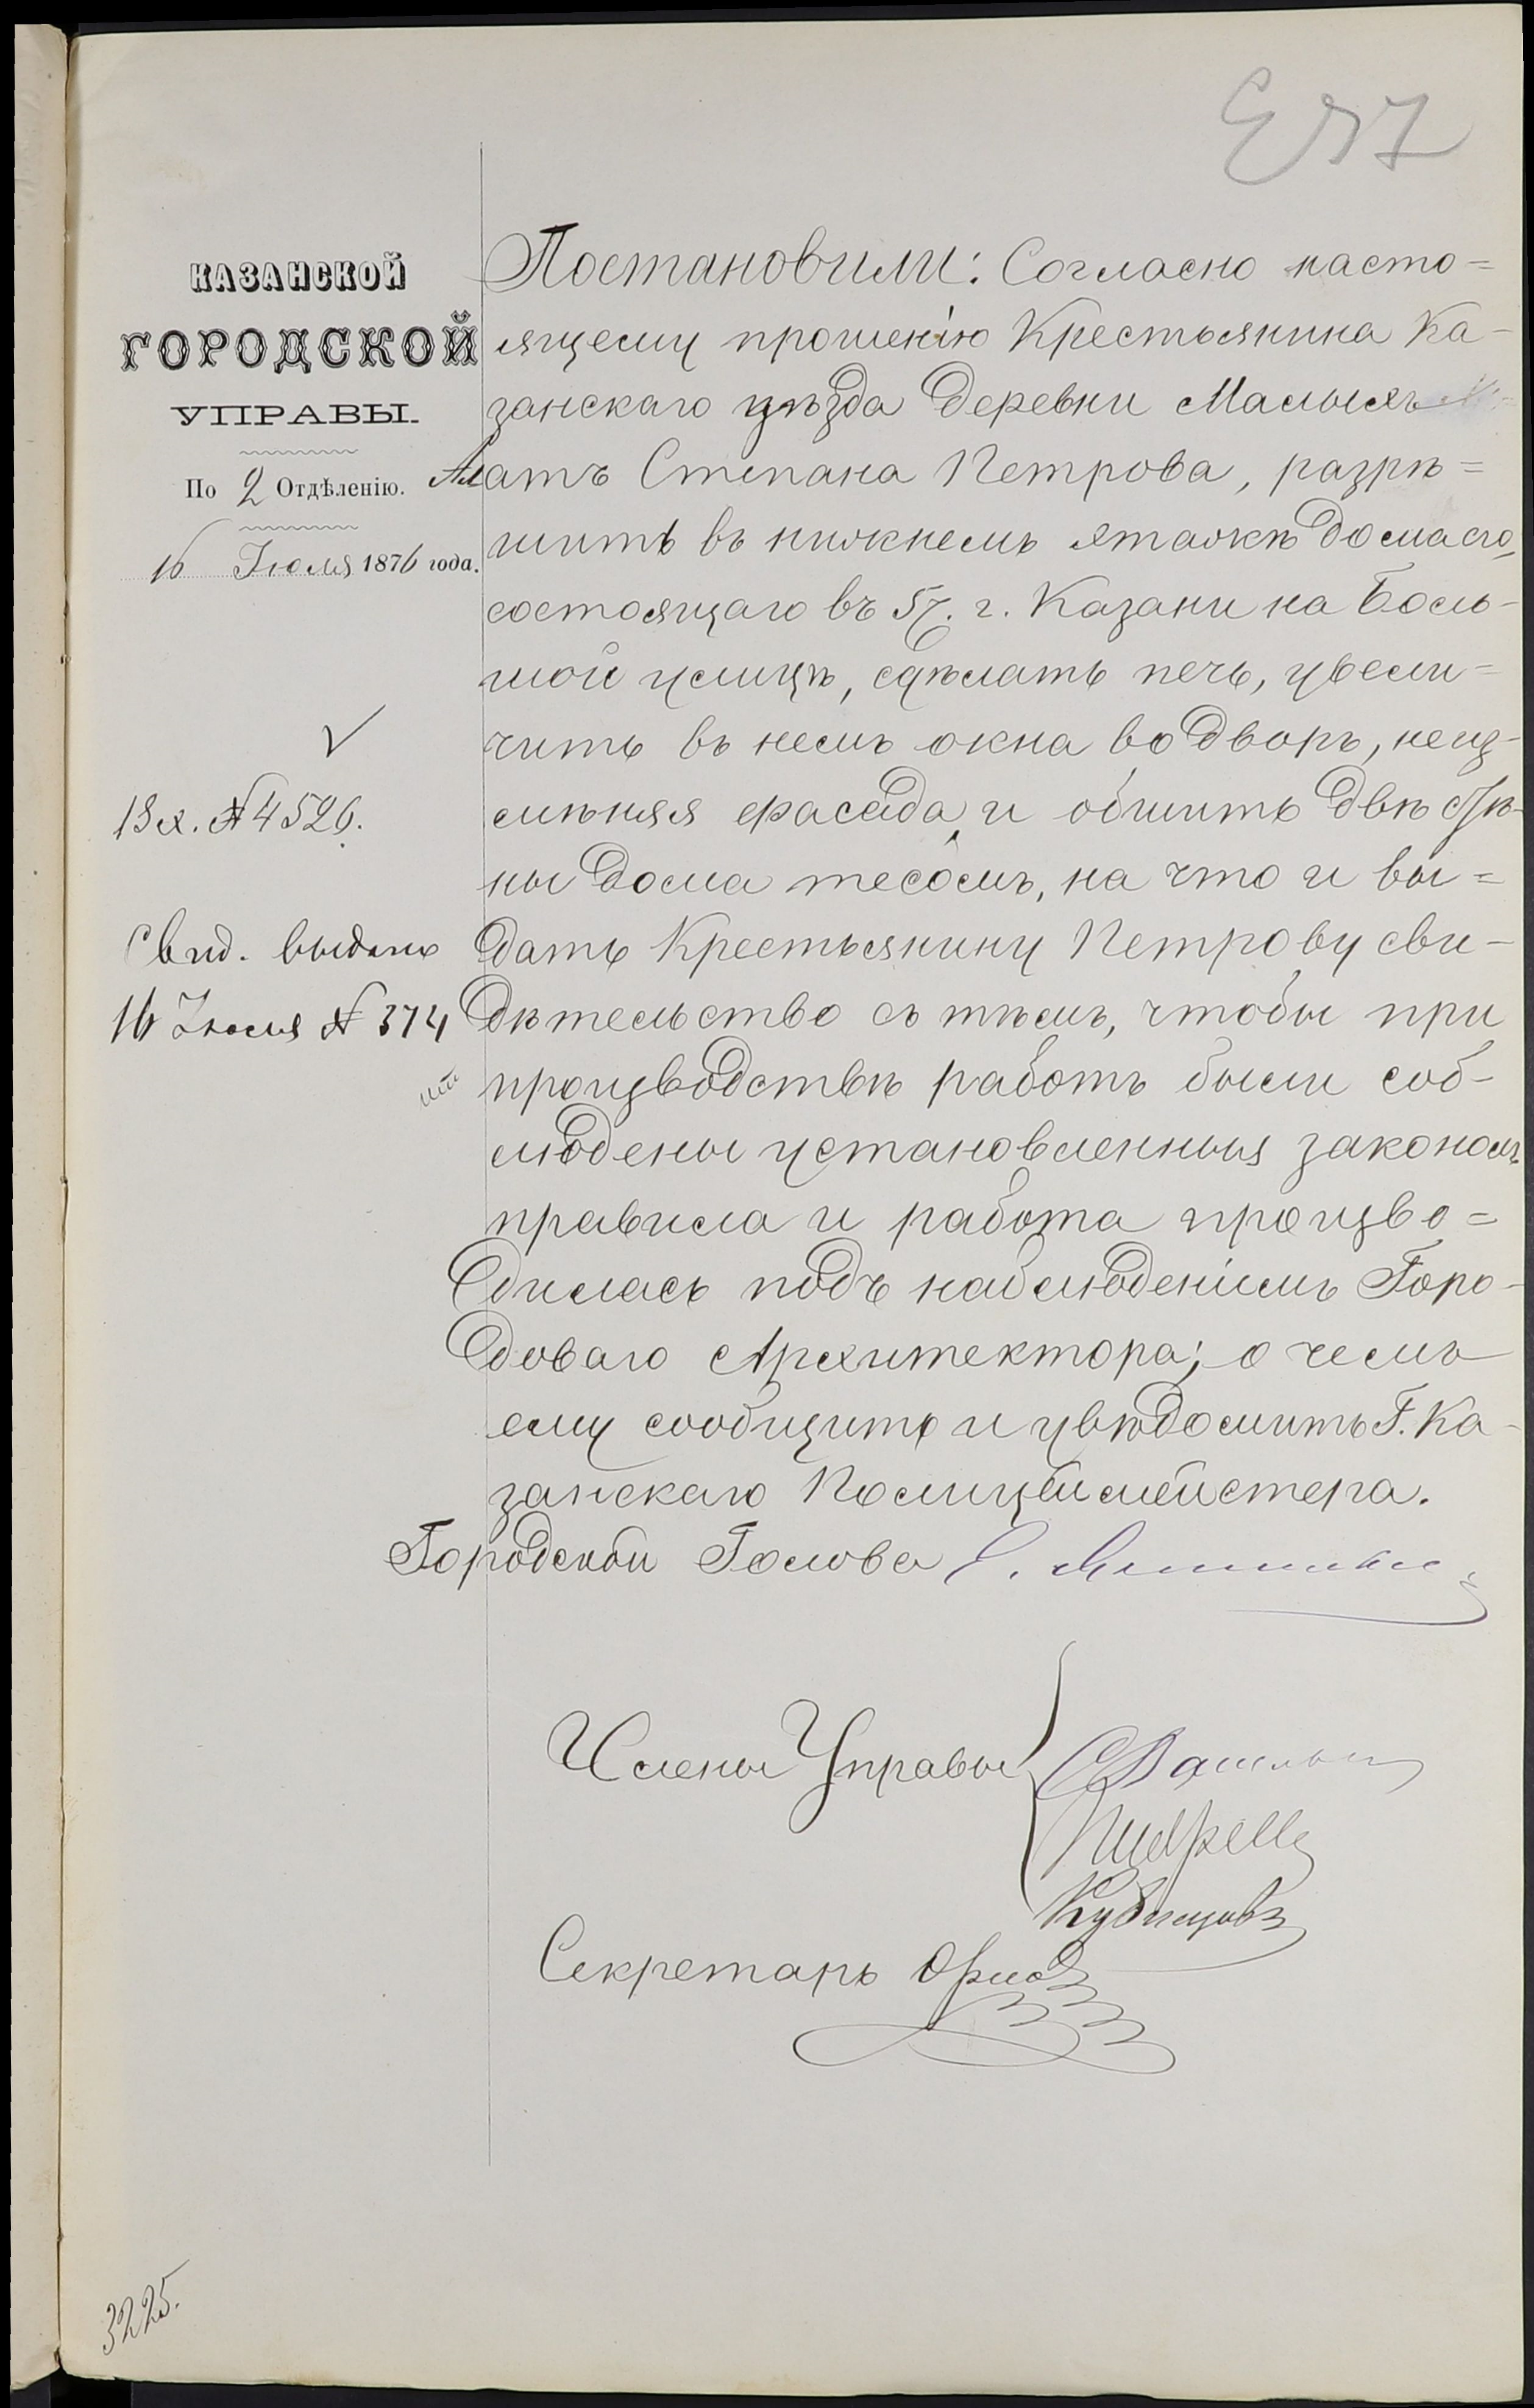 КАЗАНСКОЙ
ГОРОДСКОЙ
УПРАВЫ.
По 2 Отдѣленію.
16 Іюля 1876 года.
Вх. № 4526.
Свид. выдано
16 Іюля № 374
Постановили: Согласно насто=
ящему прошенію Крестьянина Ка-
занскаго уѣзда деревни Малыхъ
Алатъ Степана Петрова, разрѣ=
шить въ нижнемъ этажѣ дома его,
состоящаго въ 5 ч. г. Казани на Боль-
шой улицѣ, сдѣлать печь, увели=
чить въ немъ окна во дворъ, не из-
мѣняя фасада, и обшить двѣ стѣ-
ны дома тесомъ, на что и вы=
дать Крестьянину Петрову сви-
дѣтельство съ тѣмъ, чтобы при
производствѣ работъ были соб-
людены установленныя закономъ
правила и работа произво=
дилась подъ наблюденіемъ Горо-
доваго Архитектора; о чемъ
ему сообщить и увѣдомить Г. Ка-
занскаго Полицеймейстера.
Городской Голова
Члены Управы
Секретарь
3225.